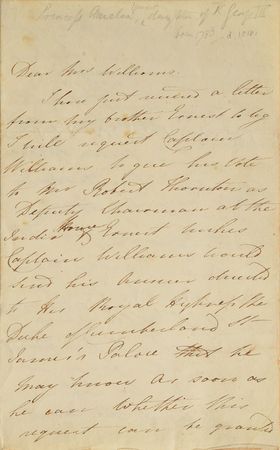 Princess Amelia daughter of K George III
born 1783 d. 1810
Dear Mrs Williams.
I have just received a letter
from my brother Ernest to beg
I will request Captain
Williams to give his Vote
to Mr Robert Thornton as
Deputy Chairman at the
India House Ernest wishes
Captain Williams would
send his answer directed
to His Royal Highness the
Duke of Cumberland St
James's Palace that he
may know as soon as
he can whether this
request can be granted